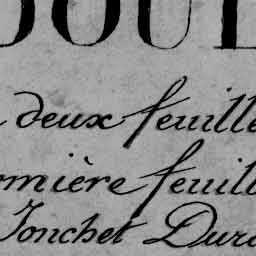 deux feuille
rmière feuill
Jonchet Dura